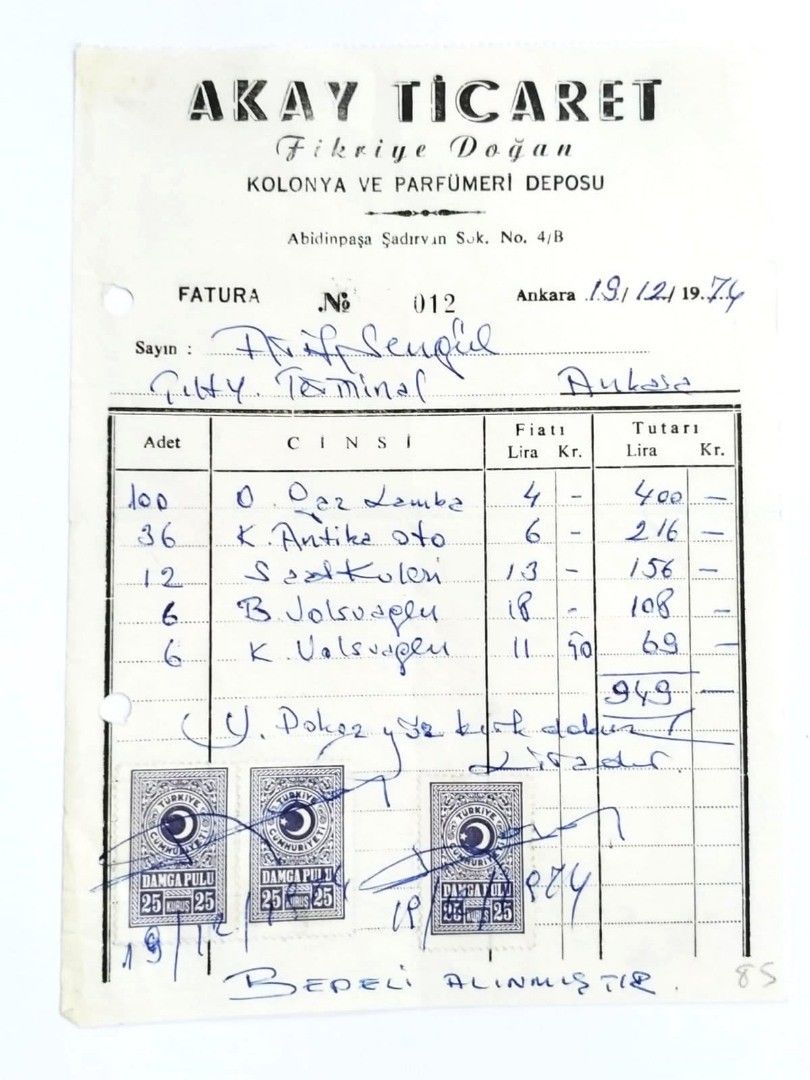 AKAY TİCARET
Fikriye Doğan
KOLONYA VE PARFÜMERİ DEPOSU
Abidinpaşa Şadırvan Sok. No. 4/B
FATURA № 012 Ankara 19/12/1974
Sayın : Arif Şengül
Terminal Ankara
Adet CINSİ Fiatı Lira Kr. Tutarı Lira Kr.
100 O. Gaz Lamba 4 - 400 -
36 K. Antika oto 6 - 216 -
12 Saat Kuleri 13 - 156 -
6 B. Volsvagen 18 - 108 -
6 K. Volsvagen 11 50 69 -
949 -
Y. Dokuz yüz kırk dokuz
Liradır.
TÜRKİYE CUMHURİYETİ
DAMGA PULU
25 KURUŞ 25
TÜRKİYE CUMHURİYETİ
DAMGA PULU
25 KURUŞ 25
TÜRKİYE CUMHURİYETİ
DAMGA PULU
25 25
19/12/1974 19/12/1974
BEDELİ ALINMIŞTIR.
85